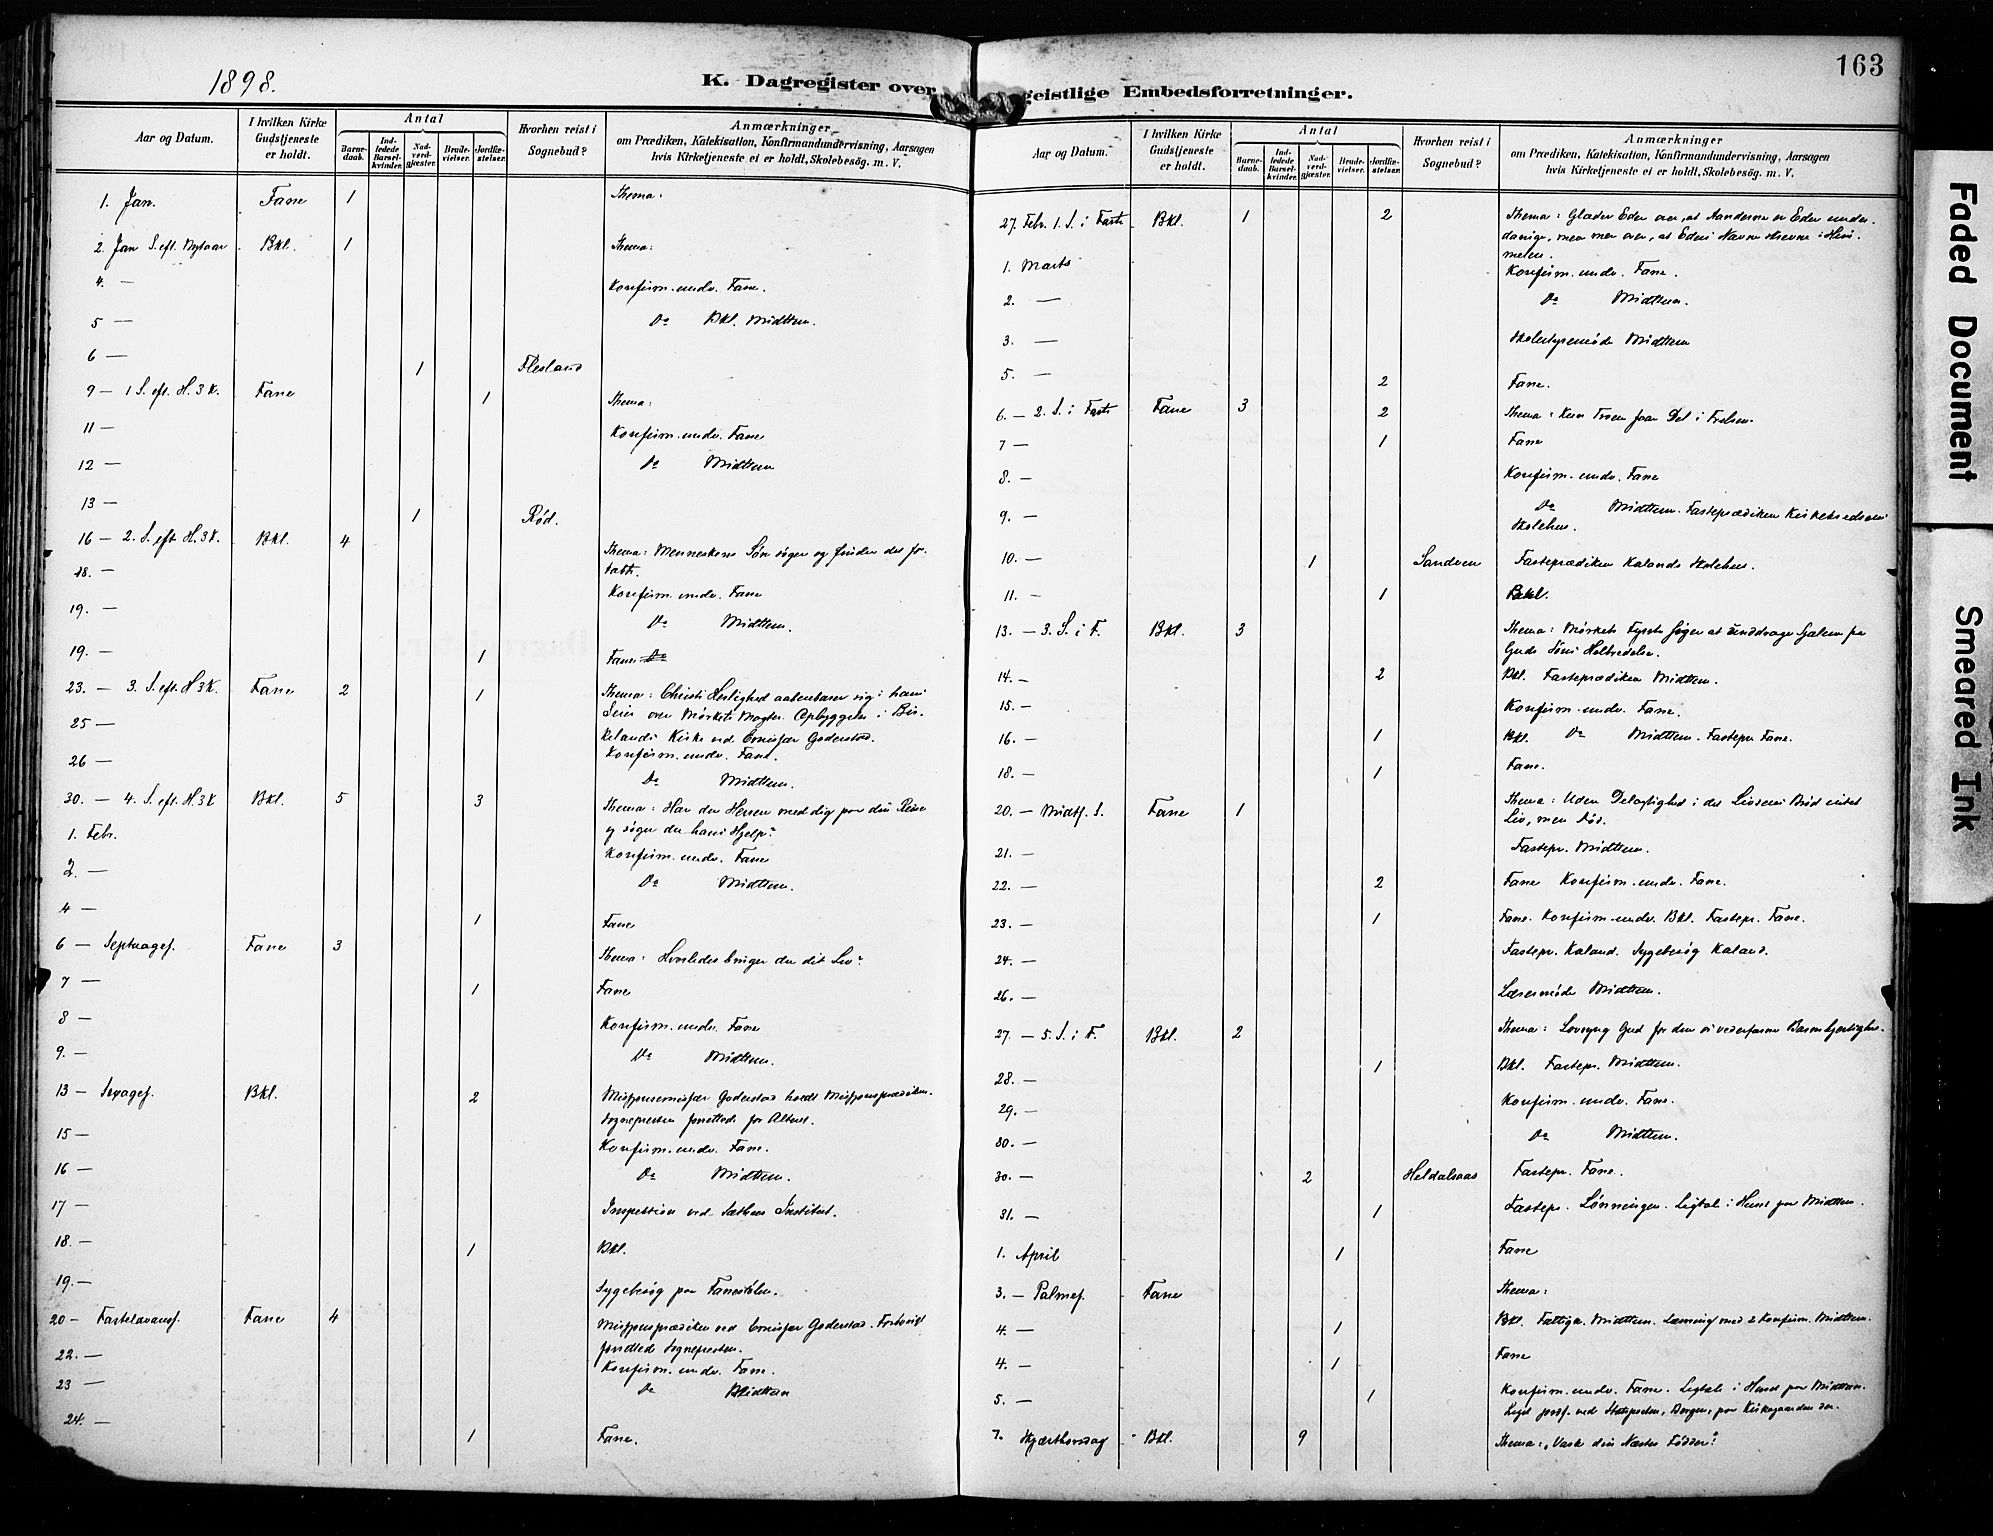 163
1898.
K. Dagregister over
geistlige Embedsforretninger.
Aar og Datum.
I hvilken Kirke Gudstjeneste er holdt.
Antal
Barnedaab.
Indledede Barselkvinder.
Nadverdgjæster.
Brudevielser.
Jordfæstelser.
Hvorhen reist i Sognebud?
Anmærkninger
om Prædiken, Katekisation, Konfirmandundervisning, Aarsagen
hvis Kirketjeneste ei er holdt, Skolebesög. m. V.
1. Jan. Fane 1 Thema:
2. Jan S. eft. Nytaar Bkl. 1 Thema:
4. — Konfirm. underv. Fane.
5 — Do Bkl. Midttun.
6 — 1 Flesland
9 — 1 S. eft. H. 3 K. Fane 1 Thema:
11 — Konfirm. underv. Fane
12 — Do Midttun
13 — 1 Rød.
16 — 2. S. eft. H. 3 K. Bkl. 4 Thema: Menneskens Søn søger og finder det for-
tabte.
18. — Konfirm. underv. Fane
19. — Do Midttun.
19. — 1 Fane
23. — 3. S. eft. H 3 K. Fane 2 1 Thema: Christi Herlighed aabenbarer sig i hans
Seier over Mørkets Magter. Opbyggelse i Bir-
kelands Kirke ved Emissær Goderstad.
25 — Konfirm. underv. Fane.
26 — Do Midttun.
30. — 4. S. eft. H. 3 K Bkl. 5 3 Thema: Har du Herren med dig paa din Reise
og søger du hans Hjelp?
1. Febr. Konfirm. underv. Fane
2. — Do Midttun.
4 — 1 Fane
6 — Septuages. Fane 3 Thema: Hvorledes bruger du dit Liv?
7 — 1 Fane
8 — Konfirm. underv. Fane
9. — Do Midttun.
13 — Sexages. Bkl. 2 Missionsemissær Goderstad holdt Missionsprædiken.
Sognepresten forrettede for Alteret.
15 — Konfirm. underv. Fane.
16 — Do Midttun.
17 — Inspektion ved Institut.
18. — 1 Bkl.
19. — Sygebesøg paa
20 — Fastelavnss. Fane 4 Missionsprædiken ved Emissær Goderstad. Forøvrigt
forrettede Sognepresten.
22. — Konfirm. underv. Fane.
23 — Do Midttun
24. — 1 Fane.
Aar og Datum.
I hvilken Kirke Gudstjeneste er holdt.
Antal
Barnedaab.
Indledede Barselkvinder.
Nadverdgjæster.
Brudevielser.
Jordfæstelser.
Hvorhen reist i Sognebud?
Anmærkninger
om Prædiken, Katekisation, Konfirmandundervisning, Aarsagen
hvis Kirketjeneste ei er holdt, Skolebesög. m. V.
27. Febr. 1. S. i Faste Bkl. 1 2 Thema: Glæder Eder over, at Aanderne er Eder under-
danige, men mer over, at Eders Navne ere skrevne i Him-
melen.
1. Marts Konfirm. underv. Fane.
2. — Do Midttun.
3. — Skolestyremøde Midttun
5. — 2 Fane.
6. — 2. S. i Faste Fane 3 2 Thema: Kun Troen faar Del i Frelsen.
7 — 1 Fane
8. — Konfirm. underv. Fane
9. — Do Midttun. Fasteprædiken
Skolehus.
10. — 1 Sandven Fasteprædiken Kalands Skolehus.
11. — 1 Bkl.
13. — 3. S. i F. Bkl. 3 Thema: Mørkets Fyrste søger at unddrage Sjælen fra
Guds Søns Helbredelse.
14. — 2 Bkl. Fasteprædiken Midttun.
15. — Konfirm. underv. Fane.
16. — 1 Bkl. Do Midttun. Fastepr. Fane.
18. — 1 Fane.
20. — Midtf. S. Fane 1 Thema: Uden Delagtighed i det Livsens Brød intet
Liv, men Død.
21. — Fastepr. Midttun.
22. — 2 Fane Konfirm. underv. Fane.
23. — 1 Fane. Konfirm. underv. Bkl. Fastepr. Fane.
24. — Fastepr. Kaland. Sygebesøg Kaland.
26. — Læsermøde Midttun.
27. — 5. S. i F. Bkl. 2 Thema: Lovsyng Gud for den os vederfarne Barmhjertighed.
28. — 1 Bkl. Fastepr. Midttun.
29. — Konfirm. underv. Fane.
30. — Do Midttun.
30. — 2 Heldalsaas Fastepr. Fane.
31. — 1 Fastepr. Lønningen. Ligtale i Huset paa Midttun.
1. April 1 Fane
3. — Palmes. Fane Thema:
4. — 1 Bkl. Fattigk. Midttun. Læsning med 2 Konfirm. Midttun.
4. — 1 Fane
5. — 1 Konfirm. underv. Fane. Ligtale i Huset paa Midttun.
Liget jordf. ved Bergen, paa Kirkegaarden der.
7. Skjærthorsdag Bkl. 9 Thema: „Vask din Næstes Fødder!"
Faded Document
Smeared Ink